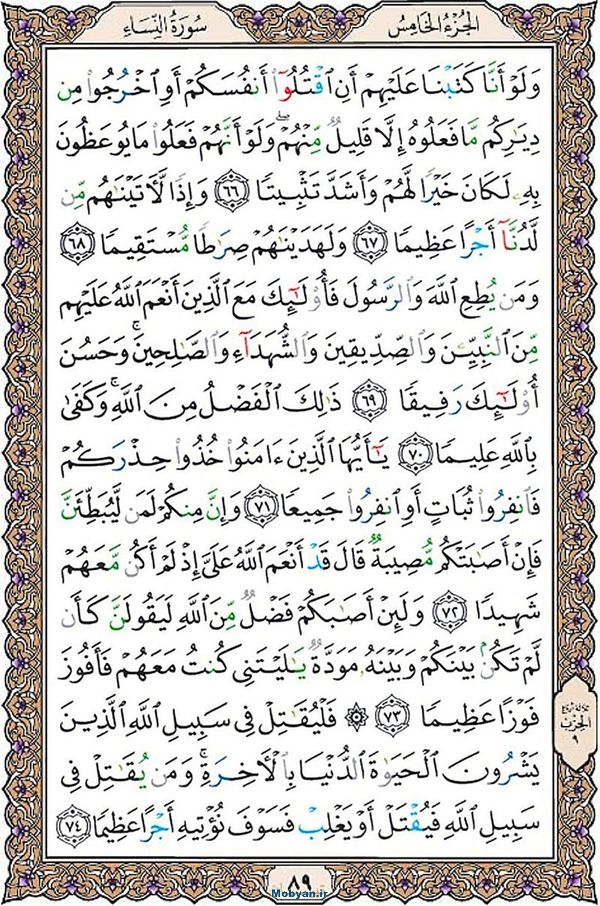 سُورَةُ النِّسَاءِ
الجُزْءُ الخَامِسُ
وَلَوْ أَنَّا كَتَبْنَا عَلَيْهِمْ أَنِ ٱقْتُلُوٓا۟ أَنفُسَكُمْ أَوِ ٱخْرُجُوا۟ مِن
دِيَـٰرِكُم مَّا فَعَلُوهُ إِلَّا قَلِيلٌ مِّنْهُمْ ۖ وَلَوْ أَنَّهُمْ فَعَلُوا۟ مَا يُوعَظُونَ
بِهِۦ لَكَانَ خَيْرًا لَّهُمْ وَأَشَدَّ تَثْبِيتًا ﴿٦٦﴾ وَإِذًا لَّـَٔاتَيْنَـٰهُم مِّن
لَّدُنَّآ أَجْرًا عَظِيمًا ﴿٦٧﴾ وَلَهَدَيْنَـٰهُمْ صِرَٰطًا مُّسْتَقِيمًا ﴿٦٨﴾
وَمَن يُطِعِ ٱللَّهَ وَٱلرَّسُولَ فَأُو۟لَـٰٓئِكَ مَعَ ٱلَّذِينَ أَنْعَمَ ٱللَّهُ عَلَيْهِم
مِّنَ ٱلنَّبِيِّـۧنَ وَٱلصِّدِّيقِينَ وَٱلشُّهَدَآءِ وَٱلصَّـٰلِحِينَ ۚ وَحَسُنَ
أُو۟لَـٰٓئِكَ رَفِيقًا ﴿٦٩﴾ ذَٰلِكَ ٱلْفَضْلُ مِنَ ٱللَّهِ ۚ وَكَفَىٰ
بِٱللَّهِ عَلِيمًا ﴿٧٠﴾ يَـٰٓأَيُّهَا ٱلَّذِينَ ءَامَنُوا۟ خُذُوا۟ حِذْرَكُمْ
فَٱنفِرُوا۟ ثُبَاتٍ أَوِ ٱنفِرُوا۟ جَمِيعًا ﴿٧١﴾ وَإِنَّ مِنكُمْ لَمَن لَّيُبَطِّئَنَّ
فَإِنْ أَصَـٰبَتْكُم مُّصِيبَةٌ قَالَ قَدْ أَنْعَمَ ٱللَّهُ عَلَىَّ إِذْ لَمْ أَكُن مَّعَهُمْ
شَهِيدًا ﴿٧٢﴾ وَلَئِنْ أَصَـٰبَكُمْ فَضْلٌ مِّنَ ٱللَّهِ لَيَقُولَنَّ كَأَن
لَّمْ تَكُنۢ بَيْنَكُمْ وَبَيْنَهُۥ مَوَدَّةٌ يَـٰلَيْتَنِى كُنتُ مَعَهُمْ فَأَفُوزَ
فَوْزًا عَظِيمًا ﴿٧٣﴾ ۞ فَلْيُقَـٰتِلْ فِى سَبِيلِ ٱللَّهِ ٱلَّذِينَ
يَشْرُونَ ٱلْحَيَوٰةَ ٱلدُّنْيَا بِٱلْـَٔاخِرَةِ ۚ وَمَن يُقَـٰتِلْ فِى
سَبِيلِ ٱللَّهِ فَيُقْتَلْ أَوْ يَغْلِبْ فَسَوْفَ نُؤْتِيهِ أَجْرًا عَظِيمًا ﴿٧٤﴾
الحزب
٩
٨٩
Mobyan.ir